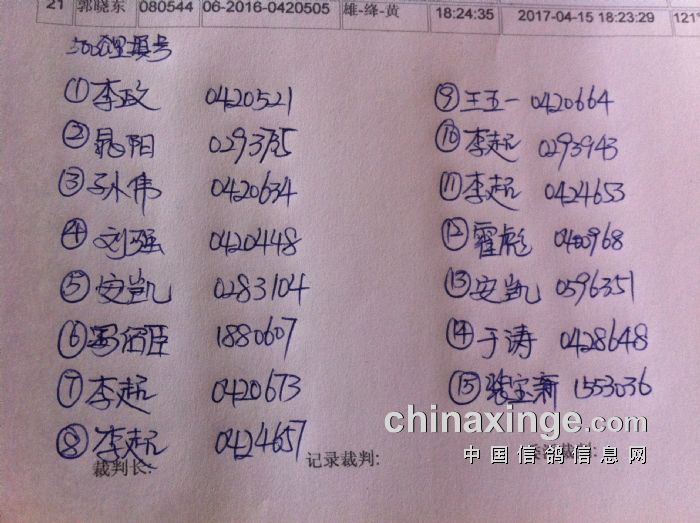 21 郭晓东 080544 06-2016-0420505 雄-绛-黄 18:24:35 2017-04-15 18:23:29 121
公里填号
① 李政 0420521
② 晁阳 0293735
③ 孙伟 0420634
④ 刘强 0420448
⑤ 安凯 0283104
⑥ 冯佰臣 1880607
⑦ 李起 0420673
⑧ 李起 0424657
⑨ 王五一 0420664
⑩ 李起 0293943
⑪ 李起 0424653
⑫ 霍彪 0400968
⑬ 安凯 0596351
⑭ 于涛 0428648
⑮ 张宝新 1553036
裁判长: 记录裁判: 裁判:
chinaxinge.com
中国信鸽信息网